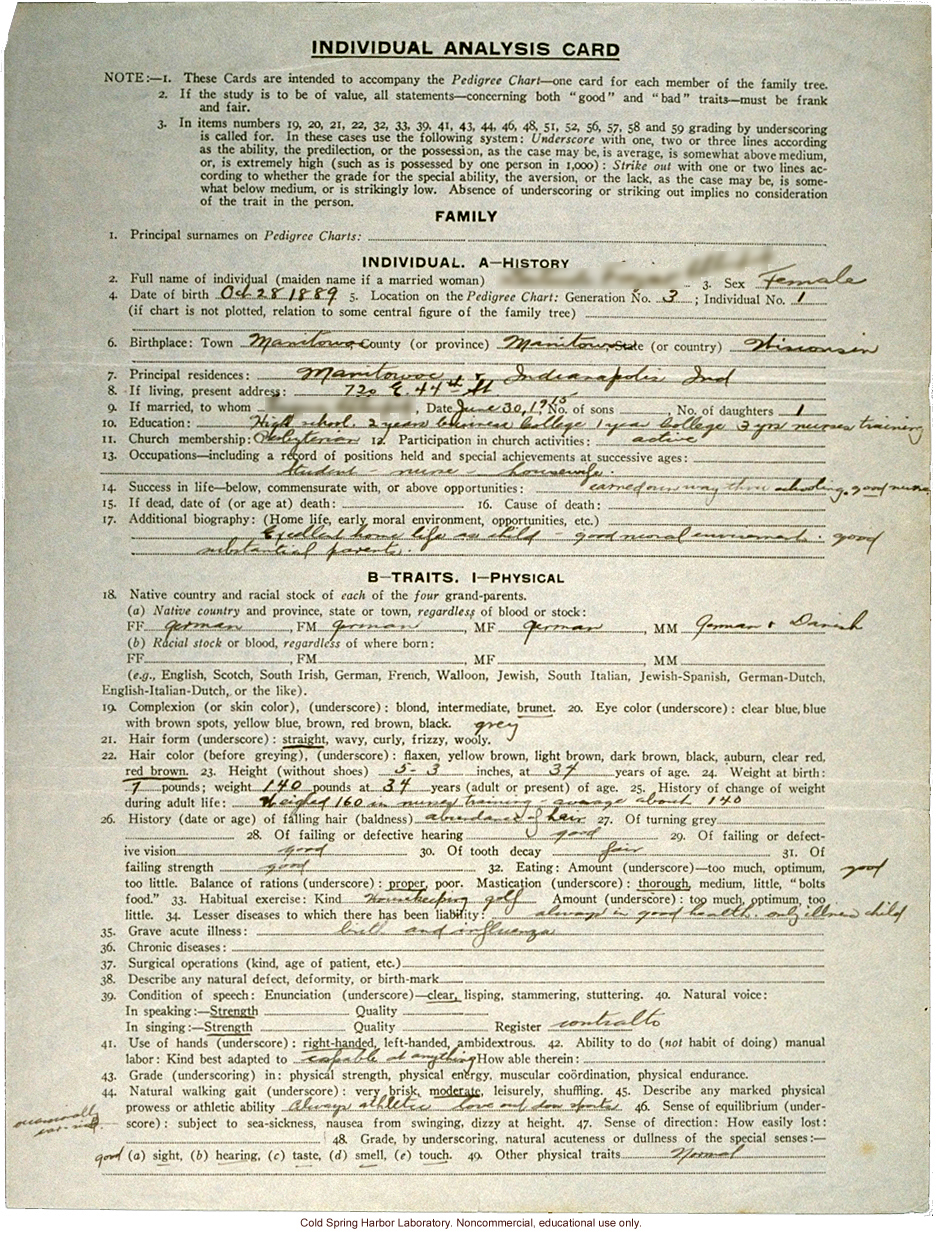 INDIVIDUAL ANALYSIS CARD
NOTE:—1. These Cards are intended to accompany the Pedigree Chart—one card for each member of the family tree.
2. If the study is to be of value, all statements—concerning both "good" and "bad" traits—must be frank
and fair.
3. In items numbers 19, 20, 21, 22, 32, 33, 39, 41, 43, 44, 46, 48, 51, 52, 56, 57, 58 and 59 grading by underscoring
is called for. In these cases use the following system: Underscore with one, two or three lines according
as the ability, the predilection, or the possession, as the case may be, is average, is somewhat above medium,
or, is extremely high (such as is possessed by one person in 1,000): Strike out with one or two lines ac-
cording to whether the grade for the special ability, the aversion, or the lack, as the case may be, is some-
what below medium, or is strikingly low. Absence of underscoring or striking out implies no consideration
of the trait in the person.
FAMILY
1. Principal surnames on Pedigree Charts:
INDIVIDUAL. A—HISTORY
2. Full name of individual (maiden name if a married woman) 3. Sex Female
4. Date of birth Oct 28 1889 5. Location on the Pedigree Chart: Generation No. 3; Individual No. 1
(if chart is not plotted, relation to some central figure of the family tree)
6. Birthplace: Town Manitowoc County (or province) Manitowoc State (or country) Wisconsin
7. Principal residences: Manitowoc & Indianapolis Ind
8. If living, present address: 720 E. 44th St
9. If married, to whom , Date June 30, 1915 No. of sons , No. of daughters 1
10. Education: High school. 2 years business College 1 year College 3 yrs nurses training
11. Church membership: Presbyterian 12. Participation in church activities: active
13. Occupations—including a record of positions held and special achievements at successive ages:
Student - nurse - housewife.
14. Success in life—below, commensurate with, or above opportunities: earned own way thru schooling. good nurse
15. If dead, date of (or age at) death: 16. Cause of death:
17. Additional biography: (Home life, early moral environment, opportunities, etc.)
Excellent home life as child - good moral environment. good
substantial parents.
B—TRAITS. I—PHYSICAL
18. Native country and racial stock of each of the four grand-parents.
(a) Native country and province, state or town, regardless of blood or stock:
FF German, FM German, MF German, MM German & Danish
(b) Racial stock or blood, regardless of where born:
FF , FM , MF , MM
(e.g., English, Scotch, South Irish, German, French, Walloon, Jewish, South Italian, Jewish-Spanish, German-Dutch,
English-Italian-Dutch, or the like).
19. Complexion (or skin color), (underscore): blond, intermediate, brunet. 20. Eye color (underscore): clear blue, blue
with brown spots, yellow blue, brown, red brown, black. grey
21. Hair form (underscore): straight, wavy, curly, frizzy, wooly.
22. Hair color (before greying), (underscore): flaxen, yellow brown, light brown, dark brown, black, auburn, clear red,
red brown. 23. Height (without shoes) 5-3 inches, at 34 years of age. 24. Weight at birth:
7 pounds; weight 140 pounds at 34 years (adult or present) of age. 25. History of change of weight
during adult life: Weighed 160 in nurses training - average about 140
26. History (date or age) of falling hair (baldness) abundance of hair 27. Of turning grey
28. Of failing or defective hearing good 29. Of failing or defect-
ive vision good 30. Of tooth decay fair 31. Of
failing strength good 32. Eating: Amount (underscore)—too much, optimum, good
too little. Balance of rations (underscore): proper, poor. Mastication (underscore): thorough, medium, little, "bolts
food." 33. Habitual exercise: Kind Housekeeping golf Amount (underscore): too much, optimum, too
little. 34. Lesser diseases to which there has been liability: always in good health. only illness child
35. Grave acute illness: birth and influenza
36. Chronic diseases:
37. Surgical operations (kind, age of patient, etc.)
38. Describe any natural defect, deformity, or birth-mark
39. Condition of speech: Enunciation (underscore)—clear, lisping, stammering, stuttering. 40. Natural voice:
In speaking:—Strength Quality
In singing:—Strength Quality Register contralto
41. Use of hands (underscore): right-handed, left-handed, ambidextrous. 42. Ability to do (not habit of doing) manual
labor: Kind best adapted to capable at anything How able therein:
43. Grade (underscoring) in: physical strength, physical energy, muscular coördination, physical endurance.
44. Natural walking gait (underscore): very brisk, moderate, leisurely, shuffling. 45. Describe any marked physical
prowess or athletic ability Always athletic love out door sports 46. Sense of equilibrium (under-
score): subject to sea-sickness, nausea from swinging, dizzy at height. 47. Sense of direction: How easily lost:
48. Grade, by underscoring, natural acuteness or dullness of the special senses:—
good (a) sight, (b) hearing, (c) taste, (d) smell, (e) touch. 49. Other physical traits Normal
Cold Spring Harbor Laboratory. Noncommercial, educational use only.